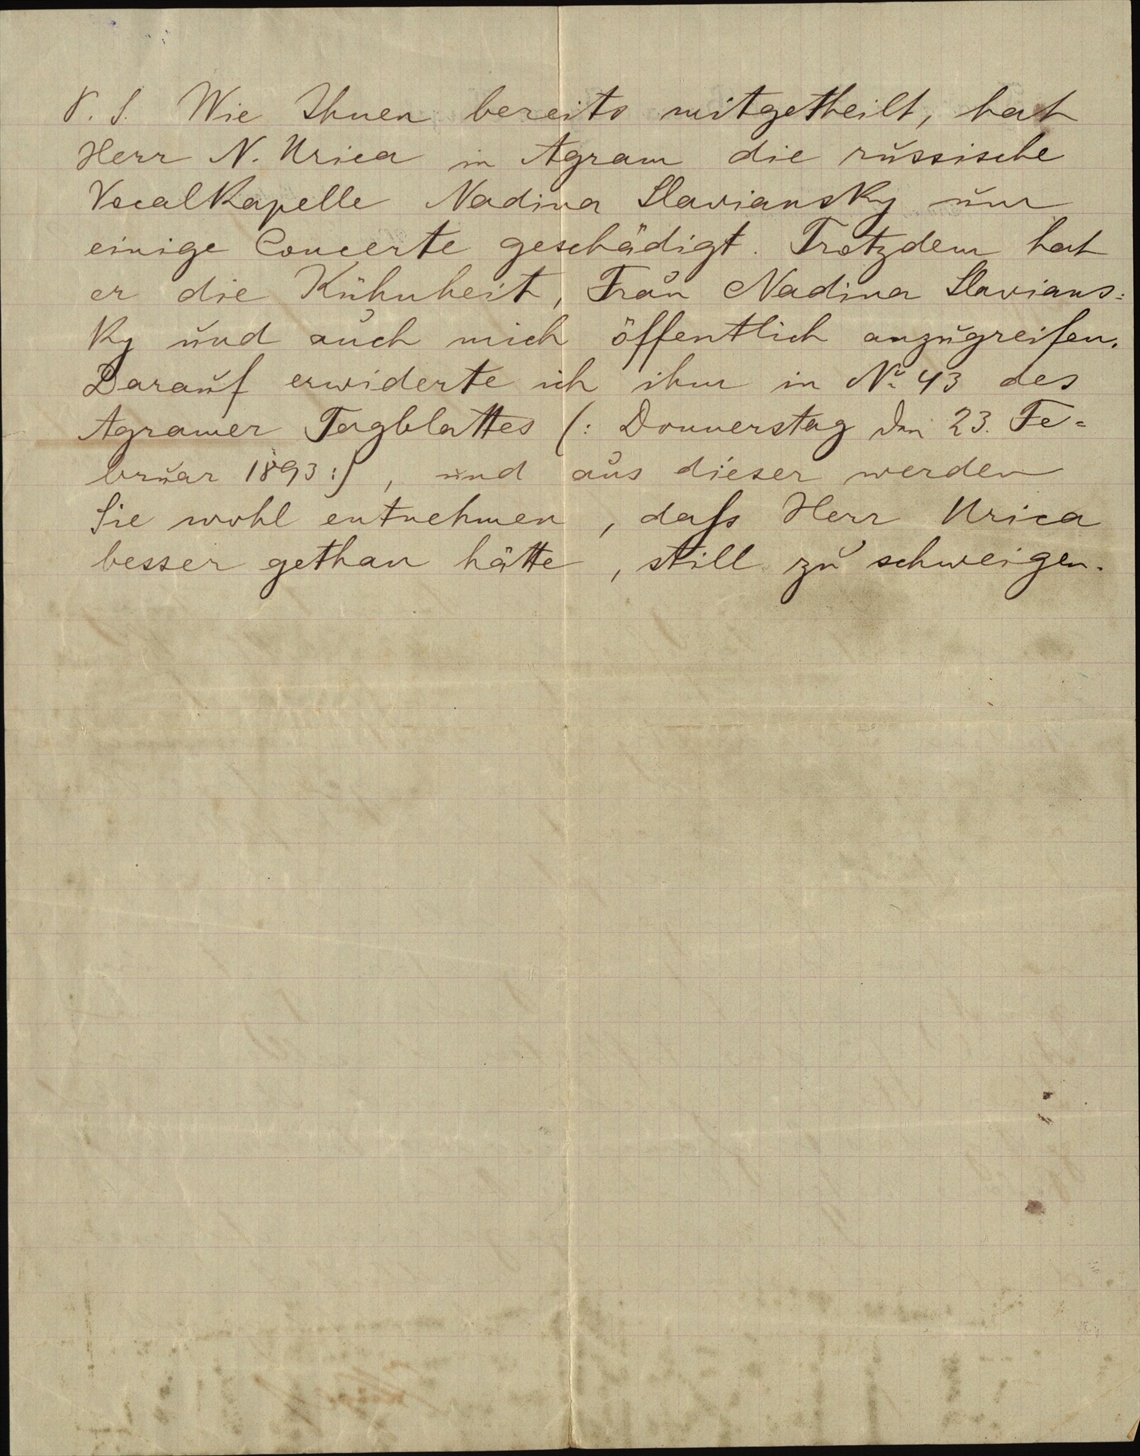 P. S. Wie Ihnen bereits mitgetheilt, hat
Herr N. Urica in Agram die russische
Vocalkapelle Nadina Slaviansky um
einige Concerte geschädigt. Trotzdem hat
er die Kühnheit, Frau Nadina Slavians:
ky und auch mich öffentlich anzugreifen.
Darauf erwiderte ich ihm in No 43 des
Agramer Tagblattes (: Donnerstag den 23. Fe-
bruar 1893 :), und aus dieser werden
Sie wohl entnehmen, daſs Herr Urica
besser gethan hätte, still zu schweigen.